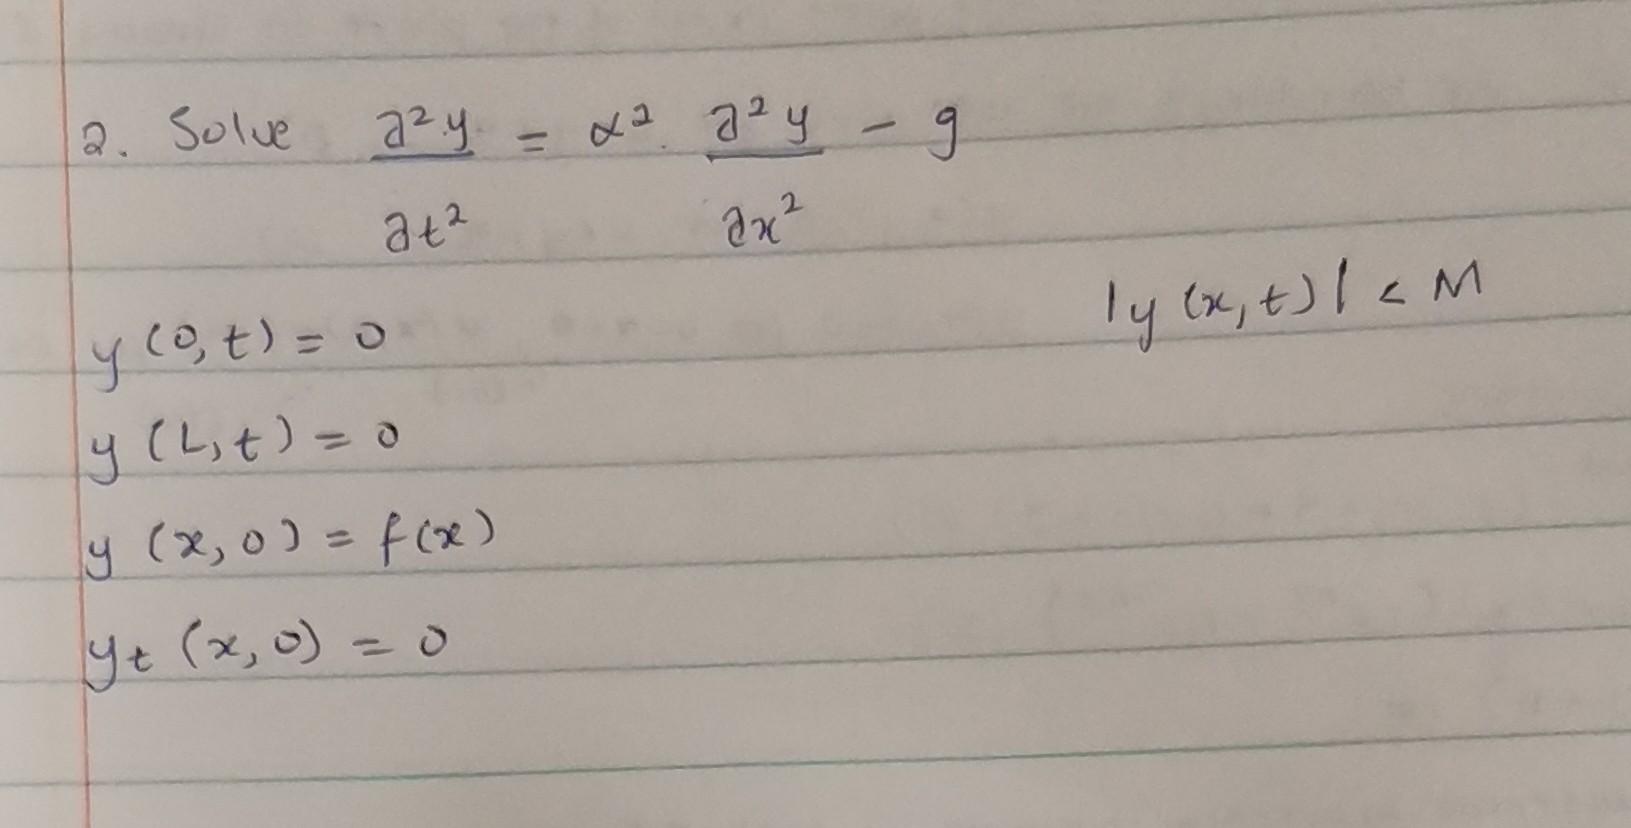 2. Solve ∂²y/∂t² = α² ∂²y/∂x² - g
|y(x,t)| < M
y(0,t) = 0
y(L,t) = 0
y(x,0) = f(x)
yt(x,0) = 0